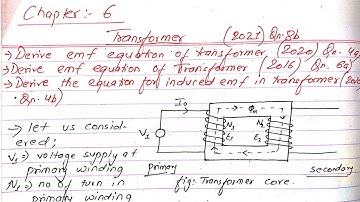 Chapter:- 6
Transformer (2021) Qn.8b
→ Derive emf equation of transformer (2020) Qn. 4a
→ Derive emf equation of Transformer (2016) Qn. 6a)
→ Derive the equation for induced emf in transformer (201
Qn. 4b)
I₀
ϕm
→ let us consid-
ered;
V₁
N₁
E₁
E₂
V₁ = voltage supply at
primary winding
primary
secondary
N₁ = no of turn in
fig: Transformer core.
primary winding